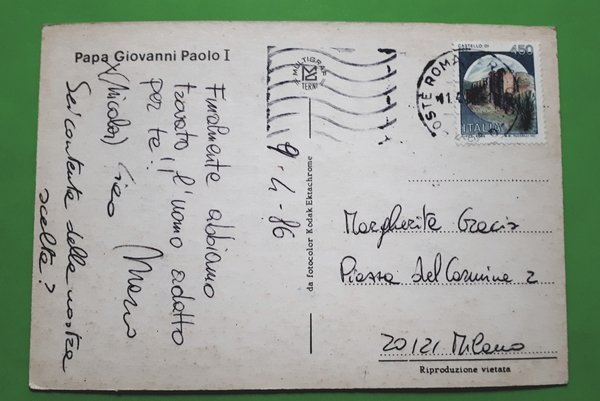 Papa Giovanni Paolo I
Finalmente abbiamo
trovato l'uomo adatto
per te!!
(Nicola) Ciao Mario
Sei contenta della nostra
scelta?
9-4-86
MULTIGRAF
TERNI
da fotocolor Kodak Ektachrome
POSTE ROMA
CASTELLO DI
450
ITALIA
Margherita Gracis
Piazza del Carmine 2
20121 Milano
Riproduzione vietata